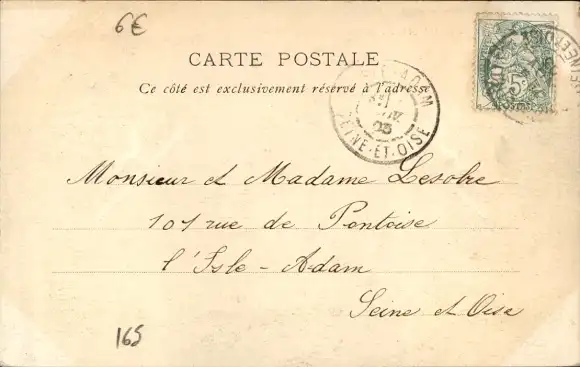 6€
CARTE POSTALE
Ce côté est exclusivement réservé à l'adresse
ADAM
03
SEINE-ET-OISE
5c
Monsieur et Madame Lesobre
107 rue de Pontoise
l'Isle-Adam
Seine et Oise
165